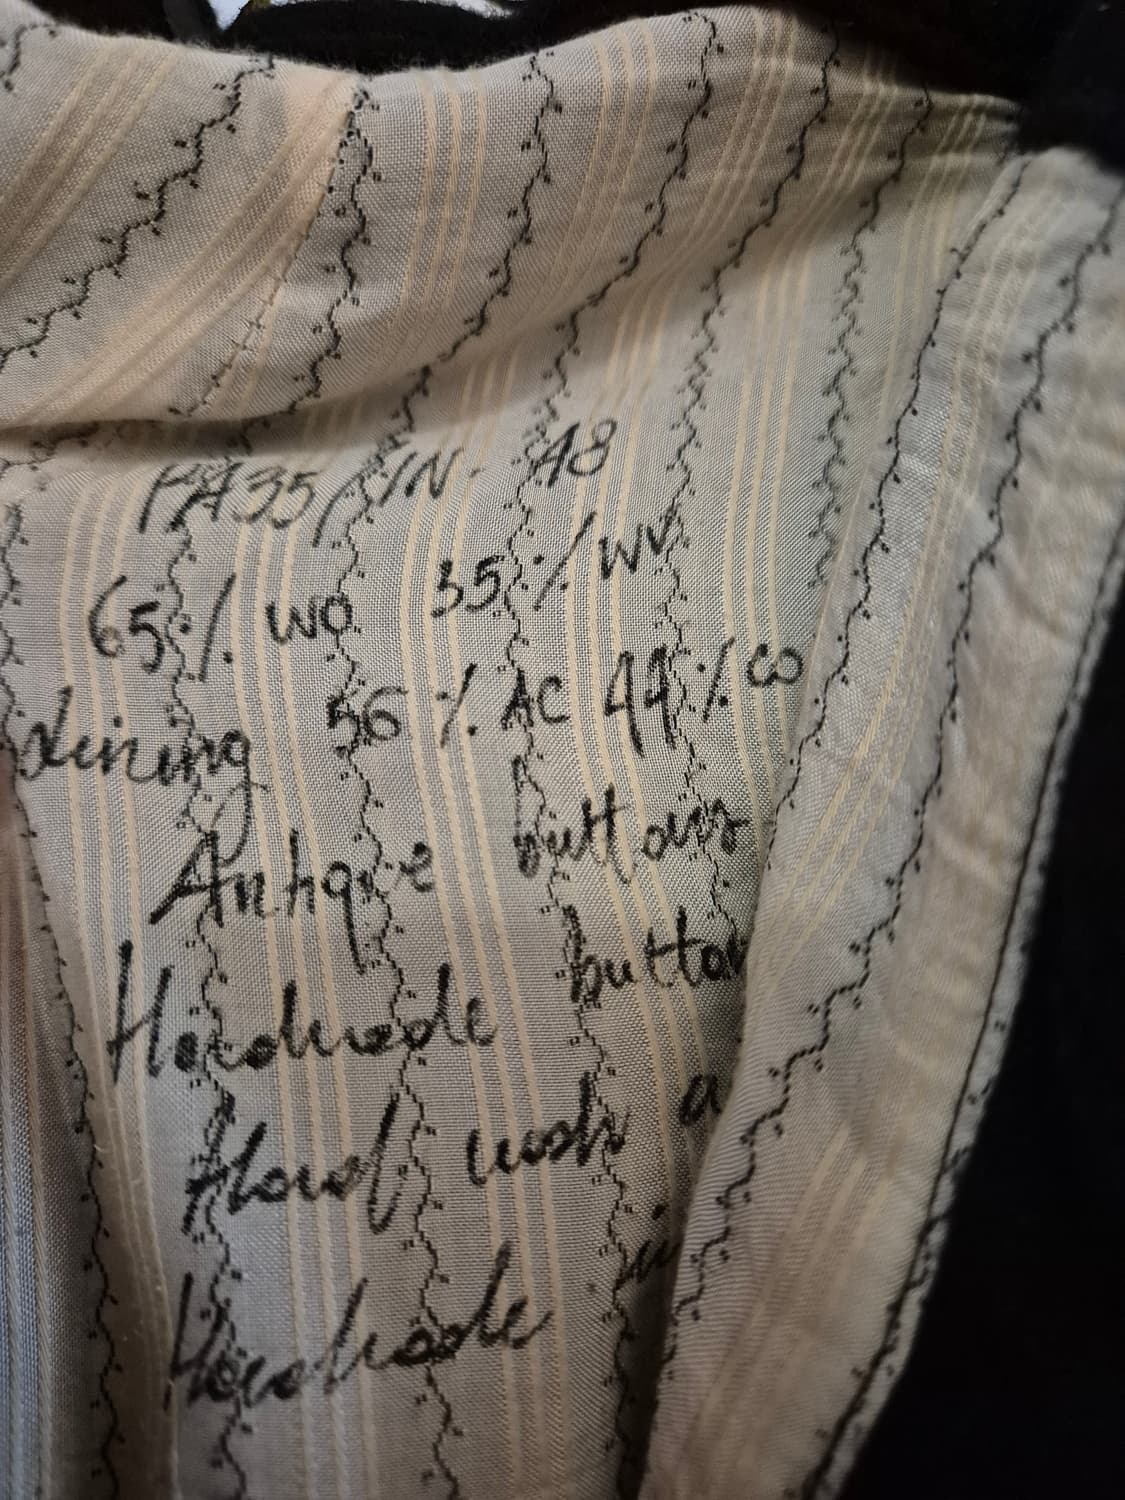 PA35/IN- 48
65% WO 35% WV
Lining 56% AC 44% CO
Antique buttons
Handmade button
Hand wash a
Handmade in